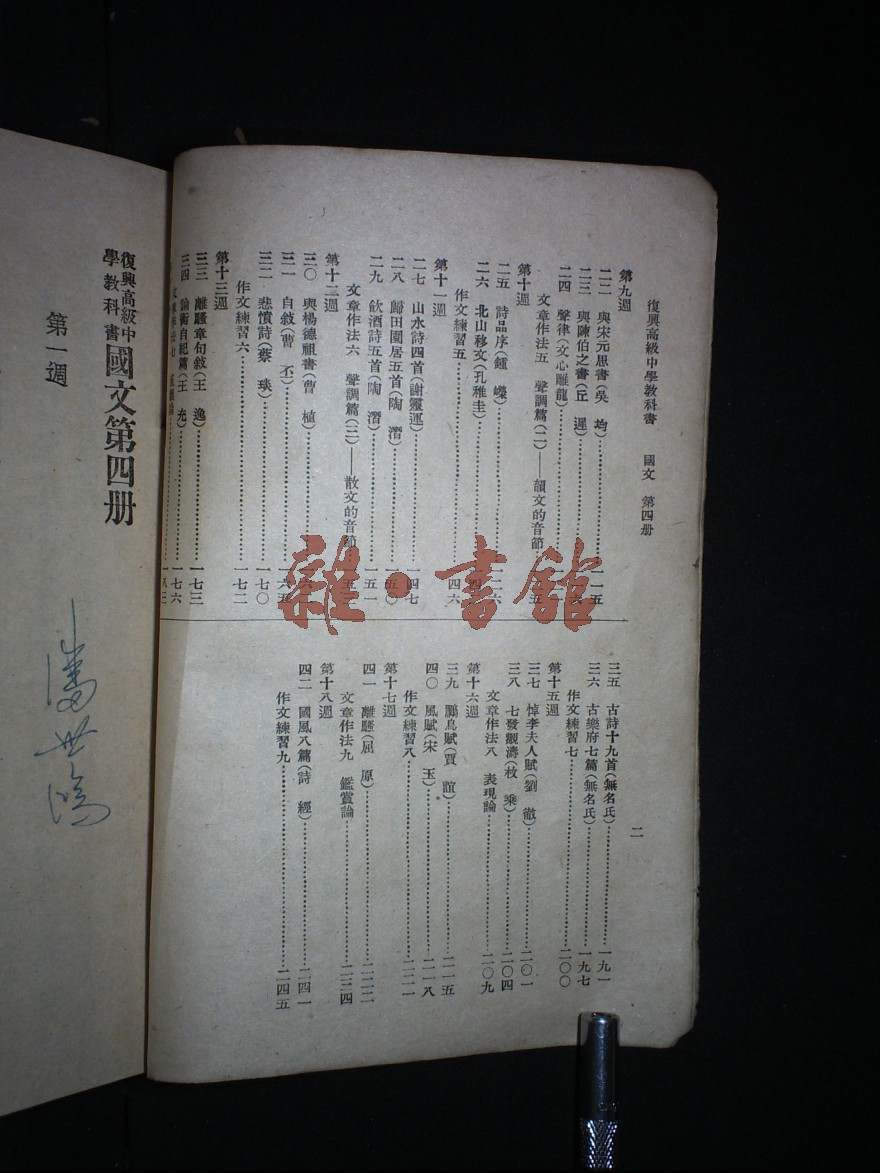 復興高級中學教科書 國文 第四册
二
第九週
二二 與宋元思書(吳 均)一五
二三 與陳伯之書(丘 遲)
二四 聲律(文心雕龍)
文章作法五 聲調篇(二)——韻文的音節
第十週
二五 詩品序(鍾 嶸)
二六 北山移文(孔稚圭)
作文練習五 一四六
第十一週
二七 山水詩四首(謝靈運)一四七
二八 歸田園居五首(陶 潛)一五〇
二九 飲酒詩五首(陶 潛)一五一
文章作法六 聲調篇(三)——散文的音節
第十二週
三〇 與楊德祖書(曹 植)
三一 自敘(曹 丕)一六五
三二 悲憤詩(蔡 琰)一七〇
作文練習六 一七二
第十三週
三三 離騷章句敘(王 逸)一七三
三四 論衡自紀篇(王 充)一七六
文章作法七 一八三
三五 古詩十九首(無名氏)一九一
三六 古樂府七篇(無名氏)一九七
作文練習七 二〇〇
第十五週
三七 悼李夫人賦(劉 徹)二〇一
三八 七發觀濤(枚 乘)二〇四
文章作法八 表現論 二〇九
第十六週
三九 鵩鳥賦(賈 誼)二一五
四〇 風賦(宋 玉)二一八
作文練習八 二二一
第十七週
四一 離騷(屈 原)二二二
文章作法九 鑑賞論 二三四
第十八週
四二 國風八篇(詩 經)二四一
作文練習九 二四五
復興高級中學教科書 國文第四册
第一週
潘世鴻
雜·書館